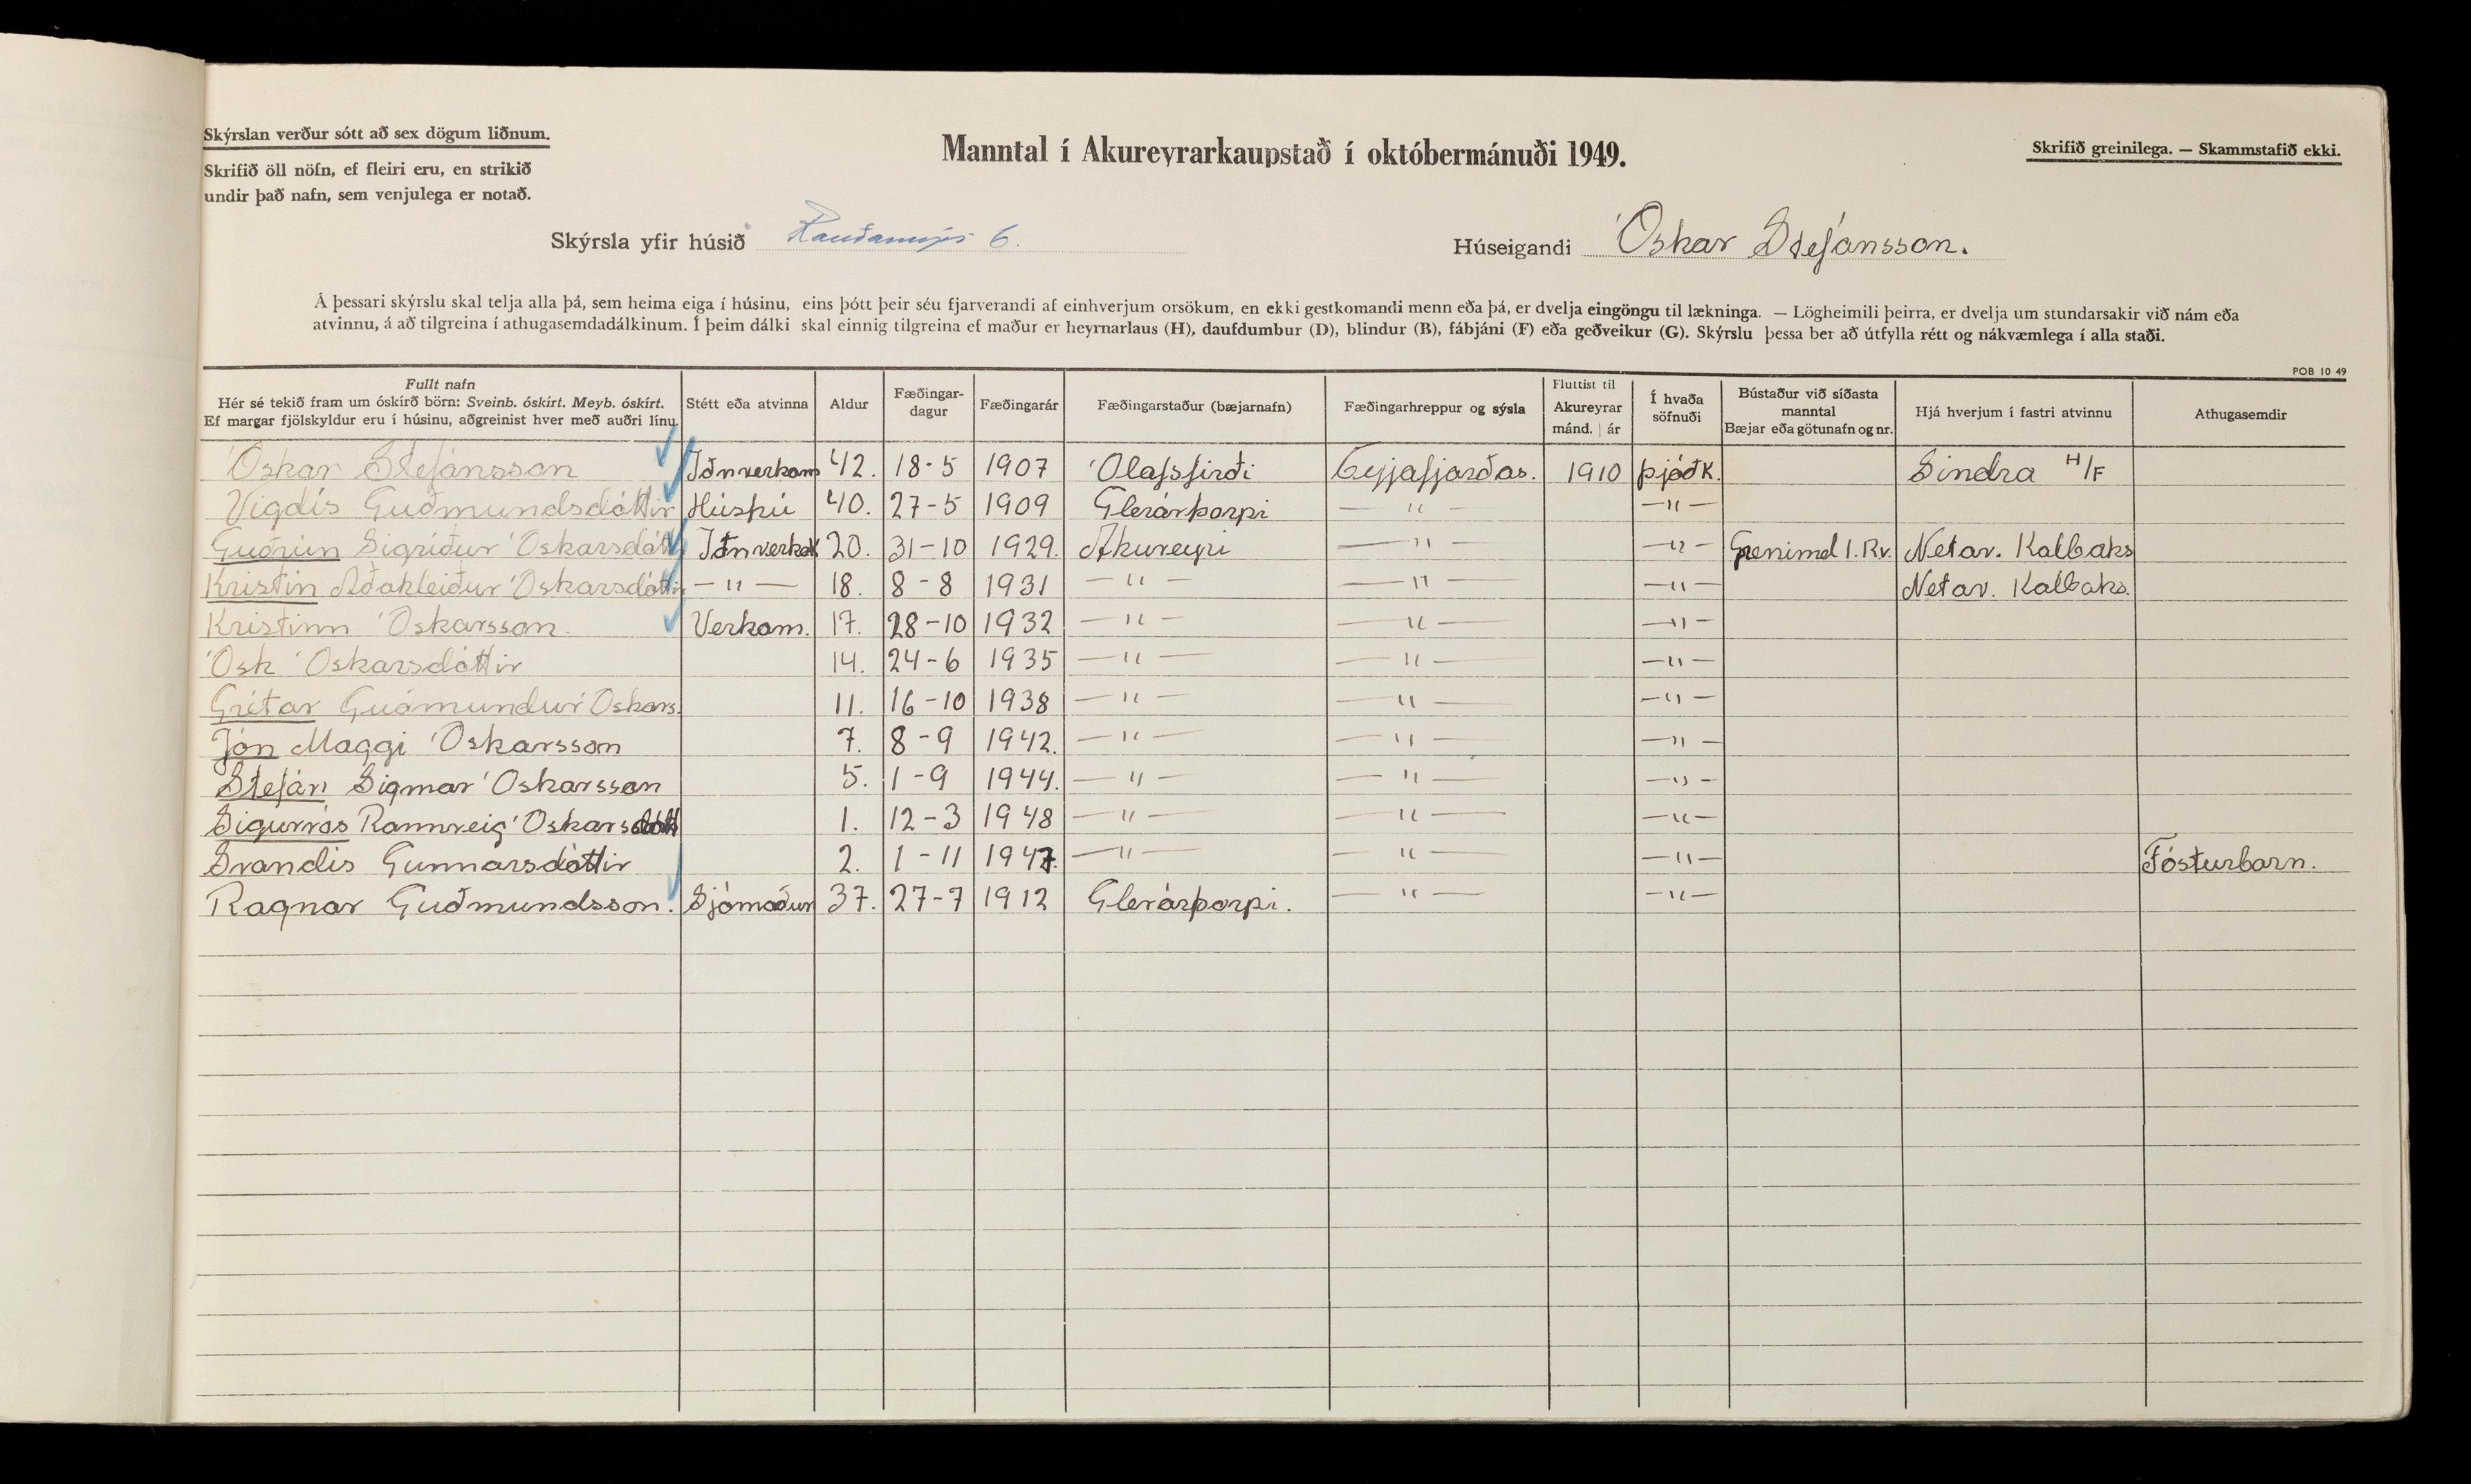 Skýrslan verður sótt að sex dögum liðnum.
Skrifið öll nöfn, ef fleiri eru, en strikið
undir það nafn, sem venjulega er notað.
Manntal í Akureyrarkaupstað í októbermánuði 1949.
Skrifið greinilega. — Skammstafið ekki.
Skýrsla yfir húsið Rauðamýri 6.
Húseigandi Óskar Stefánsson.
Á þessari skýrslu skal telja alla þá, sem heima eiga í húsinu, eins þótt þeir séu fjarverandi af einhverjum orsökum, en ekki gestkomandi menn eða þá, er dvelja eingöngu til lækninga. — Lögheimili þeirra, er dvelja um stundarsakir við nám eða
atvinnu, á að tilgreina í athugasemdadálkinum. Í þeim dálki skal einnig tilgreina ef maður er heyrnarlaus (H), daufdumbur (D), blindur (B), fábjáni (F) eða geðveikur (G). Skýrslu þessa ber að útfylla rétt og nákvæmlega í alla staði.
POB 10 49
Fullt nafn
Hér sé tekið fram um óskírð börn: Sveinb. óskírt. Meyb. óskírt.
Ef margar fjölskyldur eru í húsinu, aðgreinist hver með auðri línu.
Stétt eða atvinna
Aldur
Fæðingar-
dagur
Fæðingarár
Fæðingarstaður (bæjarnafn)
Fæðingarhreppur og sýsla
Fluttist til
Akureyrar
mánd. | ár
Í hvaða
söfnuði
Bústaður við síðasta
manntal
Bæjar eða götunafn og nr.
Hjá hverjum í fastri atvinnu
Athugasemdir
Óskar Stefánsson Iðnverkam 42. 18-5 1907 Ólafsfirði Eyjafjarðas. 1910 þjóðk. Sindra H/F
Vigdís Guðmundsdóttir Húsfrú 40. 27-5 1909 Glerárþorpi —"— —"—
Guðrún Sigríður Óskarsdótt Iðnverkak 20. 31-10 1929. Akureyri —"— —"— Grenimel 1. Rv. Netav. Kalbaks
Kristín Aðalheiður Óskarsdóttir —"— 18. 8-8 1931 —"— —"— —"— Netav. Kalbaks.
Kristinn Óskarsson. Verkam. 17. 28-10 1932 —"— —"— —"—
Ósk Óskarsdóttir 14. 24-6 1935 —"— —"— —"—
Grétar Guðmundur Óskars. 11. 16-10 1938 —"— —"— —"—
Jón Maggi Óskarsson 7. 8-9 1942. —"— —"— —"—
Stefán Sigmar Óskarsson 5. 1-9 1944. —"— —"— —"—
Sigurrós Rannveig Óskarsdótt 1. 12-3 1948 —"— —"— —"—
Svandís Gunnarsdóttir 2. 1-11 1947. —"— —"— —"— Fósturbarn.
Ragnar Guðmundsson. Sjómaður 37. 27-7 1912 Glerárþorpi. —"— —"—